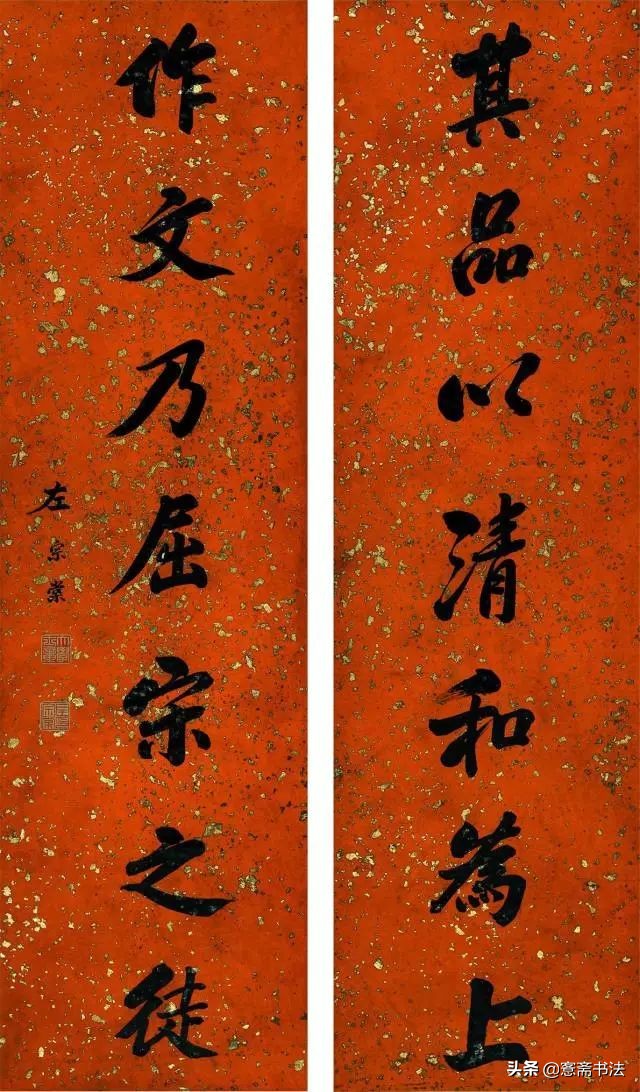 其品以清和為上
作文乃屈宋之徒
左宗棠
头条@愙斋书法